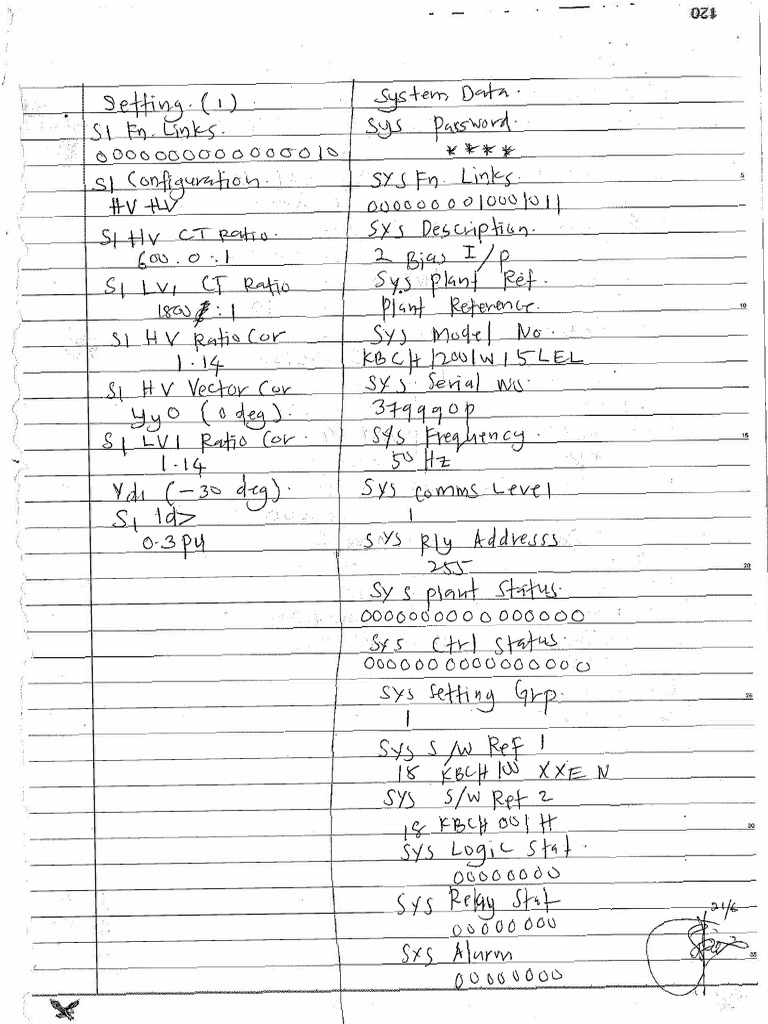 120
Setting. (1)
S1 Fn. Links.
000000000000000010
S1 Configuration.
HV HV
S1 HV CT Ratio.
600.0:1
S1 LV1 CT Ratio
1800:1
S1 HV Ratio Cor
1.14
S1 HV Vector Cor
Yy0 (0 deg).
S1 LV1 Ratio Cor.
1.14
Yd1 (-30 deg).
S1 Id>
0.3 PU
System Data.
Sys Password.
****
Sys Fn Links.
0000000010001011
Sys Description.
2 Bias I/P
Sys. Plant Ref.
Plant Reference.
Sys Model No.
KBCH 12001W15LEL
Sys. Serial No.
379990P
Sys Frequency.
50 Hz
Sys Comms Level
1
Sys Rly Addresss
255
Sys plant Status.
0000000000000000
Sys Ctrl Status.
0000000000000000
Sys Setting Grp.
1
Sys S/W Ref 1
18 KBCH 100 XXE N
Sys S/W Ref 2
18 KBCH 001 H
Sys Logic Stat.
00000000
Sys Relay Stat
00000000
Sys Alarm
00000000
21/6
5
10
15
20
25
30
35